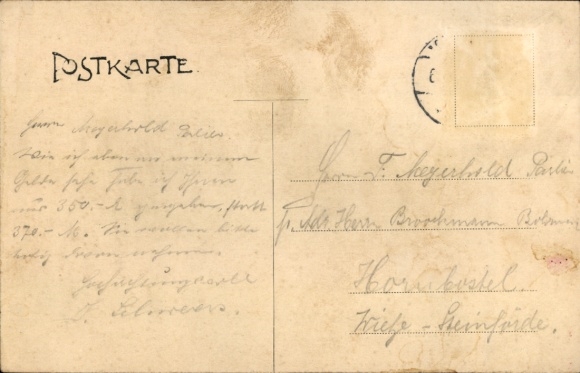 POSTKARTE.
Herrn Meyerhold
Wie ich eben an meinem
Gelde sehe habe ich Ihnen
nur 350.- M gegeben, statt
370.- M. Sie wollen bitte
davon nehmen.
Hochachtungsvoll
Herrn F. Meyerhold
p. Adr. Herrn Brockmann
Hornbostel.
Wietze-Steinförde.